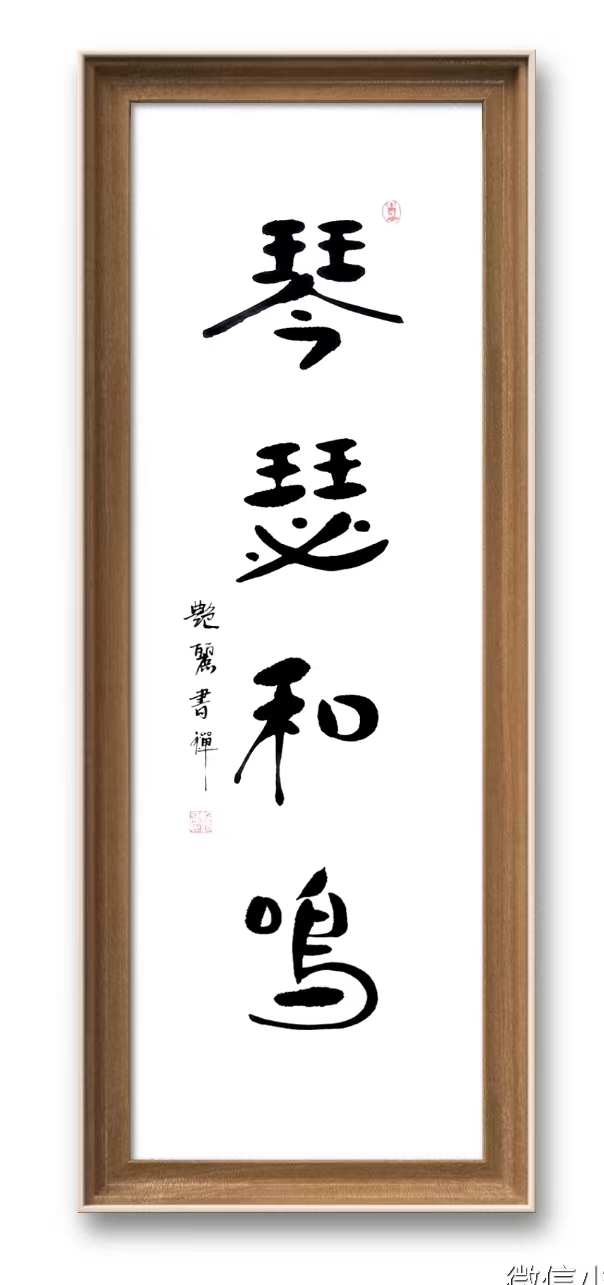 琴瑟和鸣
艶麗書禪
微信小